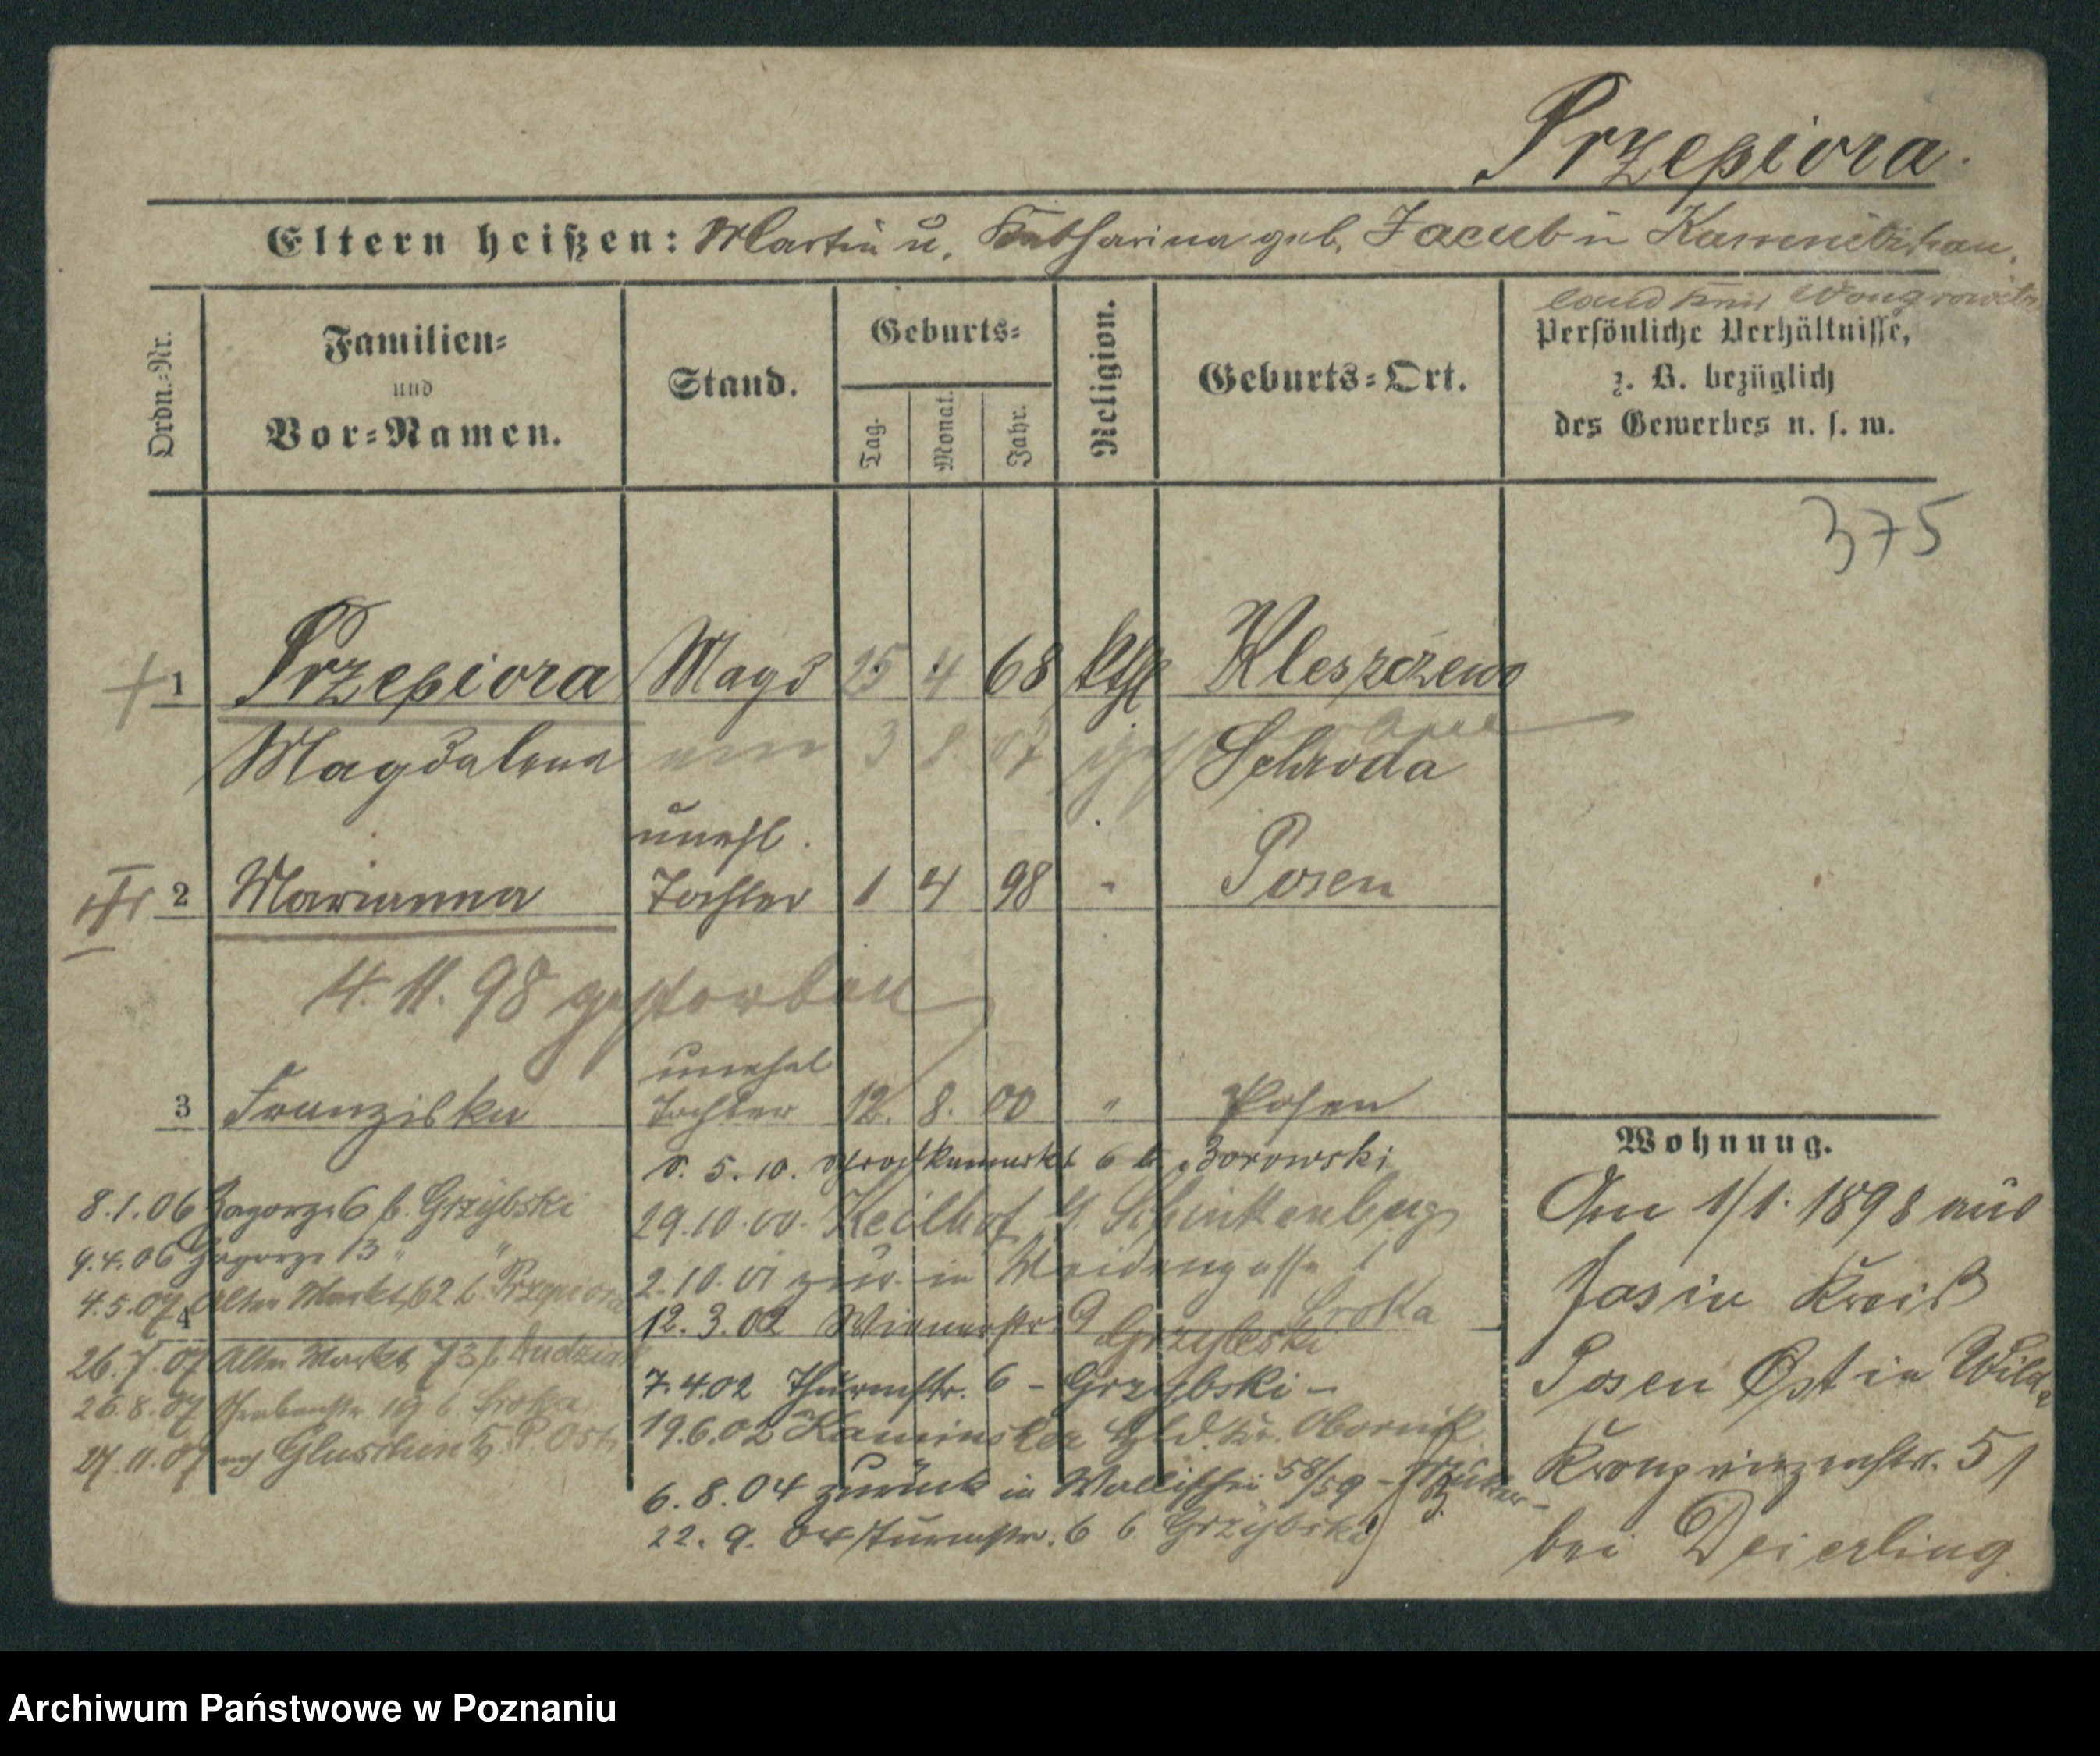 Przepiora.
Eltern heißen: Martin u. Katharina geb. Jacub in
Wongrowitz
Ordn.=Nr.
Familien=
und
Vor=Namen.
Stand.
Geburts=
Tag.
Monat.
Jahr.
Religion.
Geburts=Ort.
Persönliche Verhältnisse,
z. B. bezüglich
des Gewerbes u. s. w.
375
1 Przepiora Magd 25 4 68 kth Kleszczewo
Magdalena 3 8 07 Schroda
unehl.
2 Marianna Tochter 1 4 98 " Posen
4. 11. 98 gestorben
unehel
3 Franziska Tochter 12. 8. 00 " Posen
5. 10. 6 b. Borowski
29.10.00. Keilhof
2.10.01 zur. in Weidengasse 1
Sroka
12.3.02 Wienerstr. 9 Grzybski
7.4.02 Thurmstr. 6 - Grzybski -
19.6.02 Obornik
6.8.04 zurück in Wallischei 58/59 -
22. 9. 04 Turmstr. 6 b Grzybski
8.1.06 Zagorze 6 b. Grzybski
9.4.06 Zagorze 13 " "
4.5.07 Alter Markt 62 b Przepiora
4
26.7.07 Alter Markt 73 b Dudziak
26.8.07 19 b Sroka
27.11.07 P. Ost
Wohnung.
Am 1/1. 1898 aus
Jasin Kreis
Posen Ost in Wilda
Kronprinzenstr. 51
bei Deierling
Archiwum Państwowe w Poznaniu